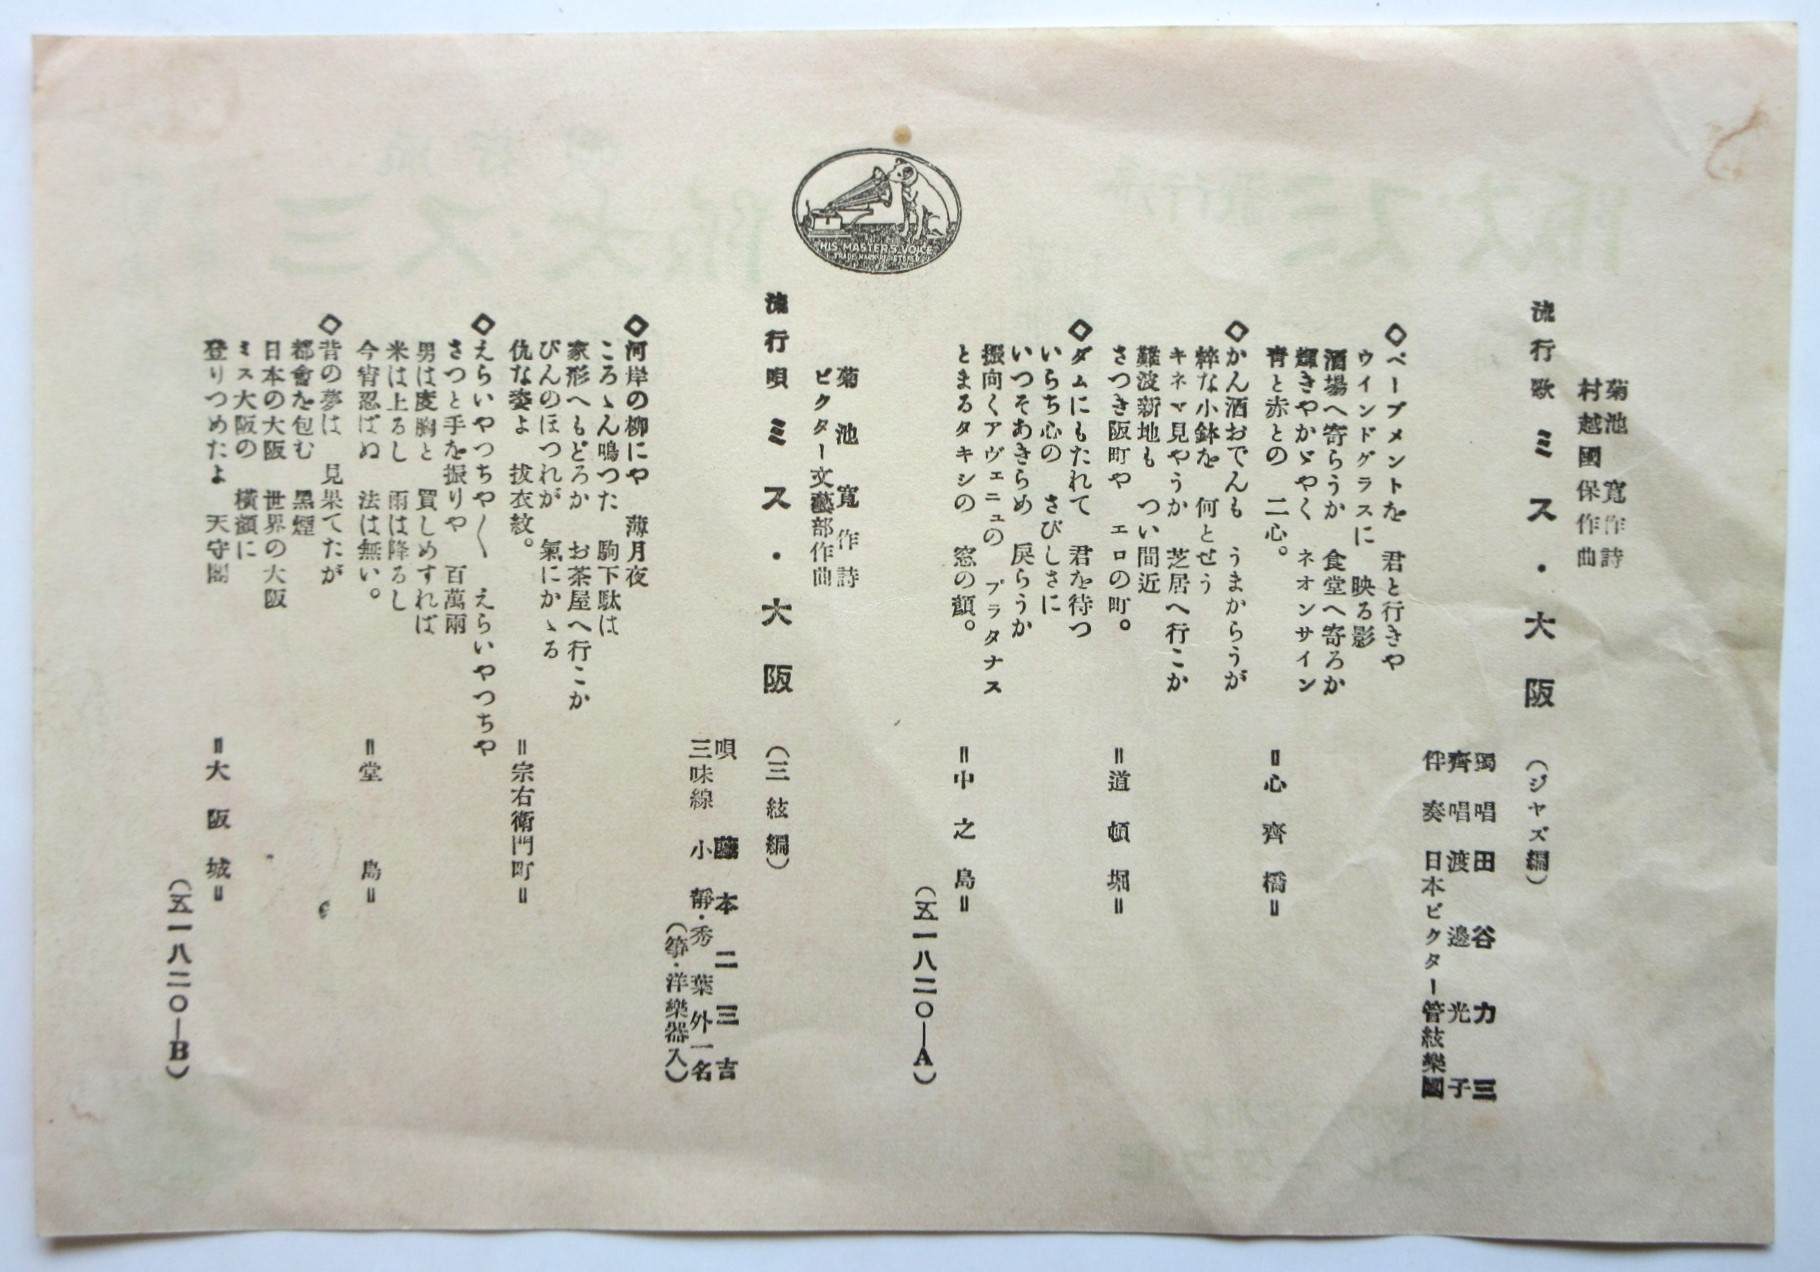 HIS MASTER'S VOICE
菊池 寛作詩
村越國保作曲
流行歌 ミス・大阪 (ジャズ編)
獨唱 田谷力三
齊唱 渡邊光子
伴奏 日本ビクター管絃樂團
◇ペーブメントを 君と行きや
ウインドグラスに 映る影
酒場へ寄らうか 食堂へ寄ろか
輝きやかゞやく ネオンサイン
青と赤との 二心。
=心齊橋=
◇かん酒おでんも うまからうが
粹な小鉢を 何とせう
キネマ見やうか 芝居へ行こか
難波新地も つい間近
さつき阪町や エロの町。
=道頓堀=
◇ダムにもたれて 君を待つ
いらち心の さびしさに
いつそあきらめ 戻らうか
振向くアヴェニュの プラタナス
とまるタキシの 窓の顔。
=中之島=
(五一八二〇—A)
菊池 寛作詩
ビクター文藝部作曲
流行唄 ミス・大阪 (三絃編)
唄 藤本二三吉
三味線 小靜・秀葉外一名
(箏・洋樂器入)
◇河岸の柳にや 薄月夜
ころゝん鳴つた 駒下駄は
家形へもどろか お茶屋へ行こか
びんのほつれが 氣にかゝる
仇な姿よ 拔衣紋。
=宗右衛門町=
◇えらいやつちや〱 えらいやつちや
さつと手を振りや 百萬兩
男は度胸と 買しめすれば
米は上るし 雨は降るし
今宵忍ばぬ 法は無い。
=堂島=
◇昔の夢は 見果てたが
都會を包む 黒煙
日本の大阪 世界の大阪
ミス大阪の 橫顔に
登りつめたよ 天守閣
=大阪城=
(五一八二〇—B)